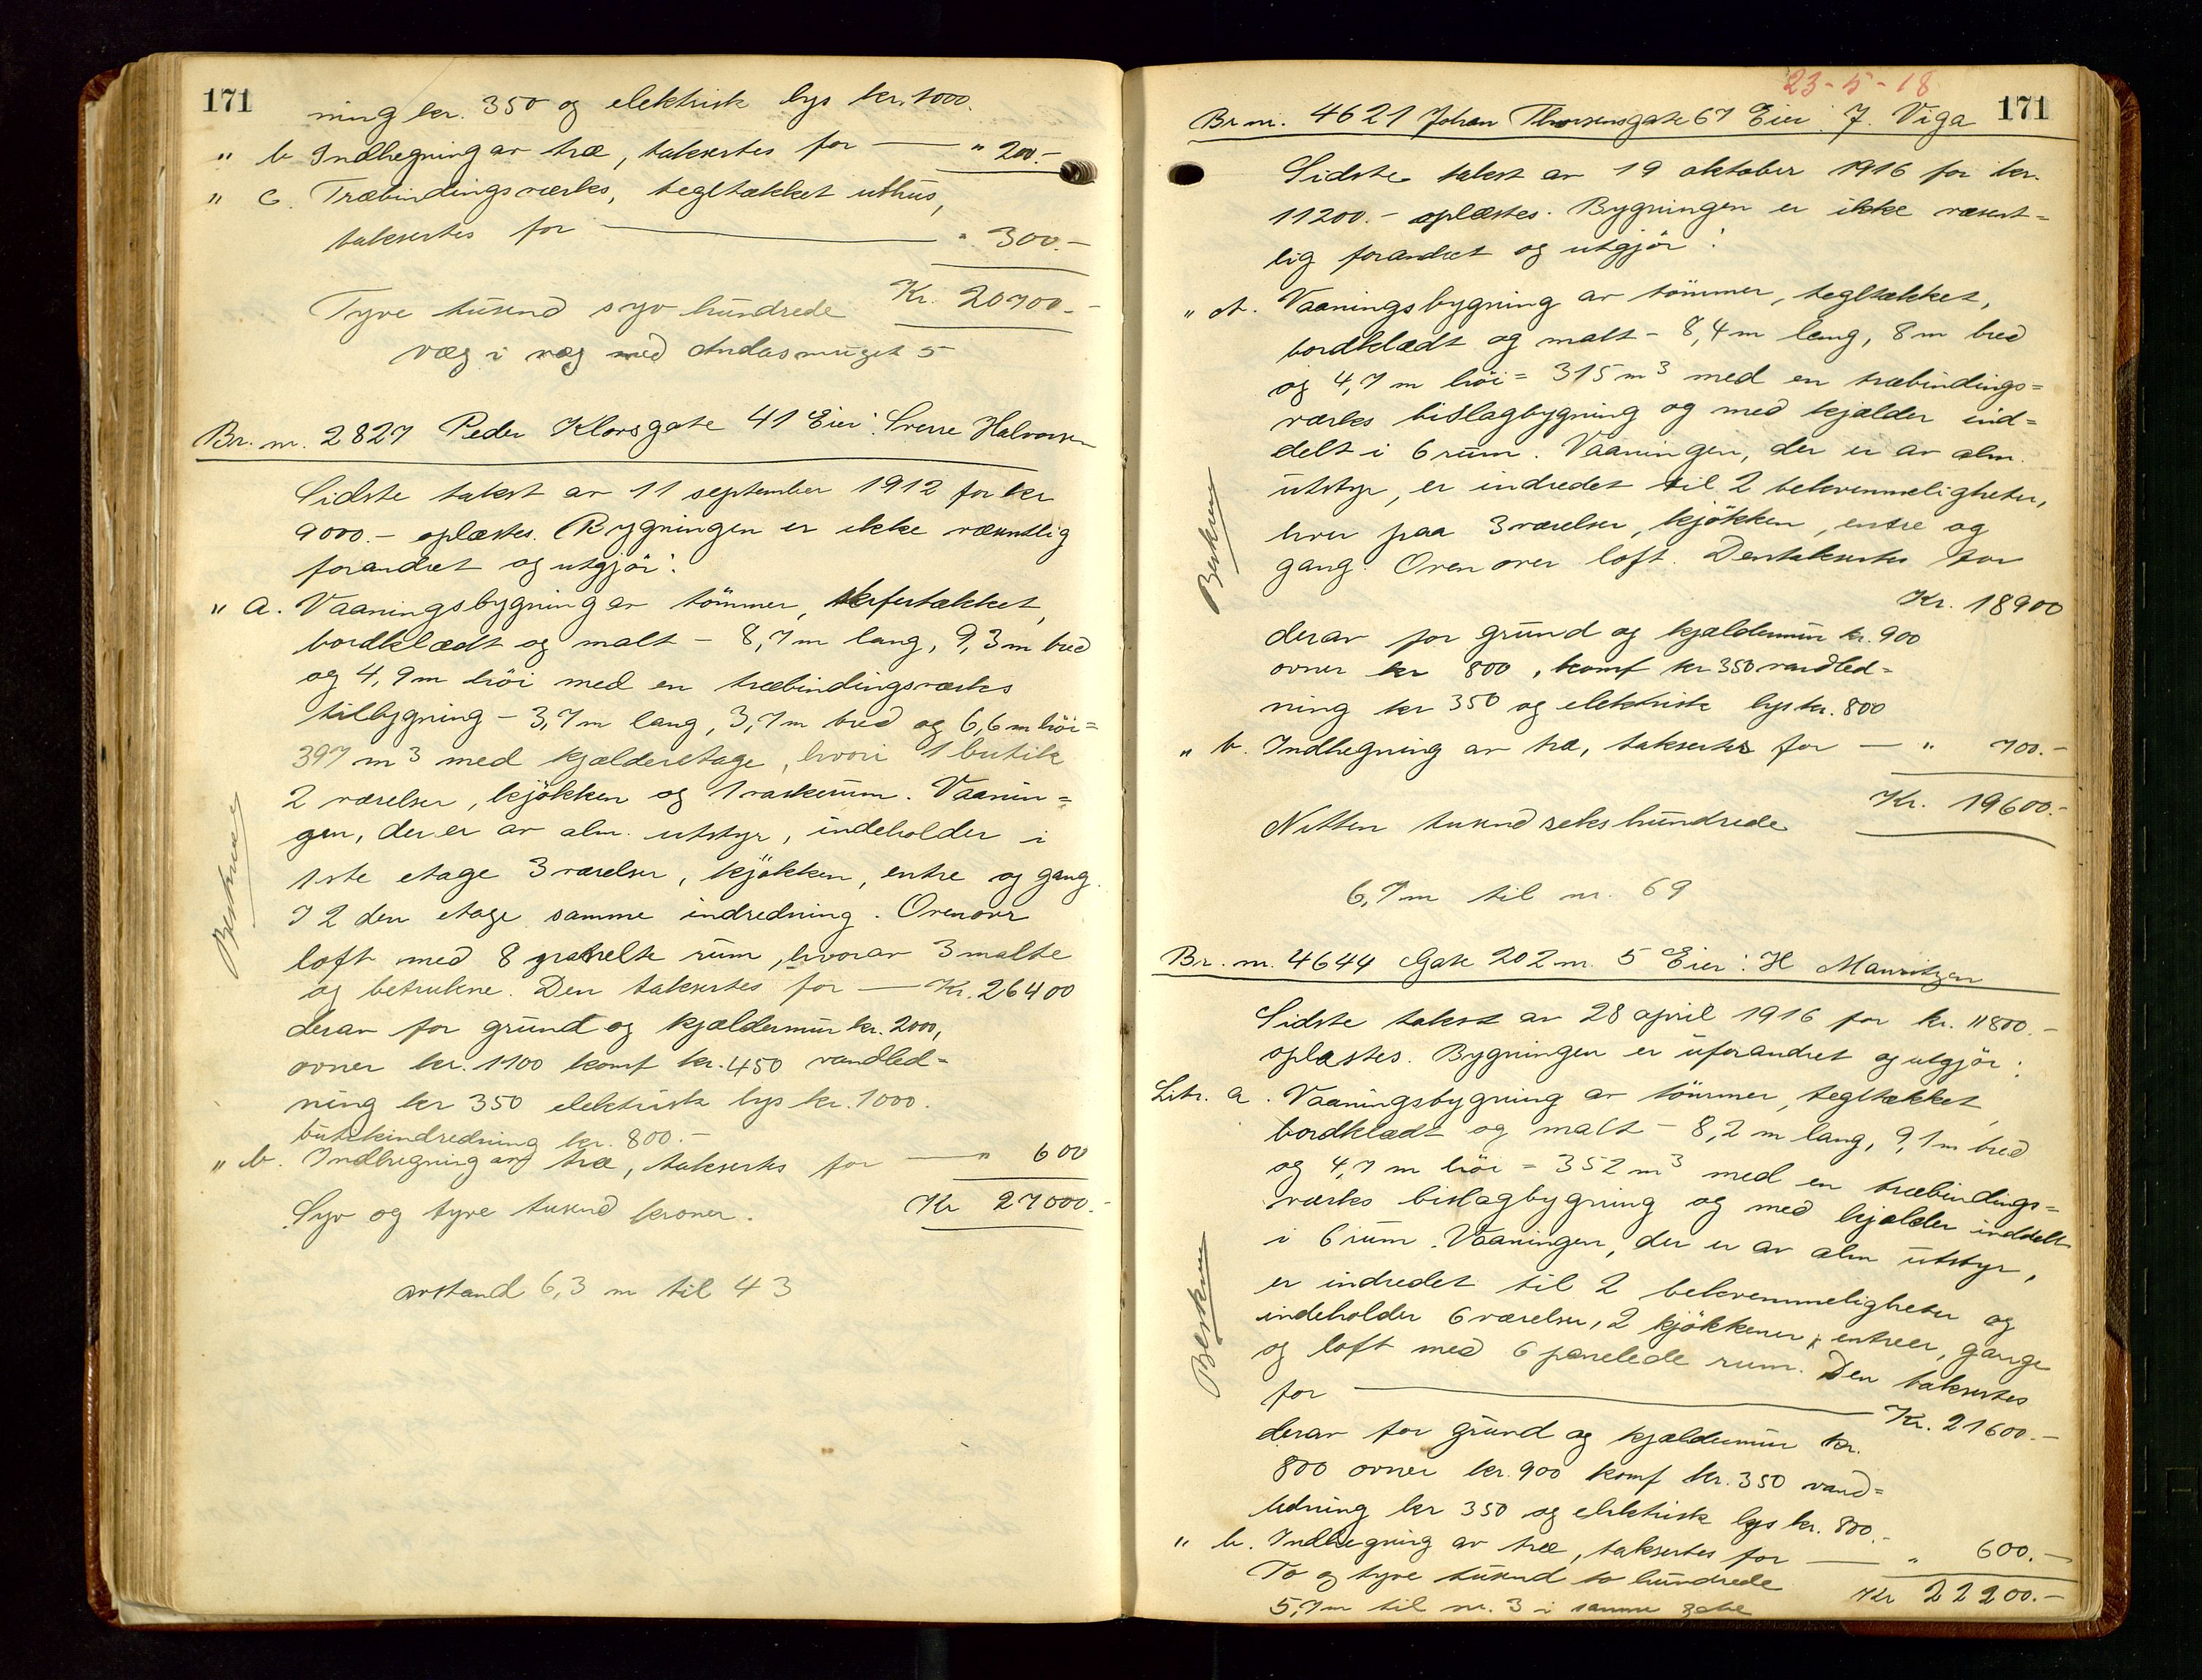 171
ning kr. 350 og elektrisk lys kr. 1000.
" b Indhegning av træ, takseres for — " 200.-
" c. Træbindingsverks, tegltækket uthus,
takseres for — " 300.-
Kr. 20700.-
Tyve tusend syv hundrede
væg i væg med Andasmuget 5
Br. nr. 2827 Peder Klovsgate 41 Eier: Sverre Halvorsen
Sidste takst av 11 september 1912 for kr
9000.- oplæstes. Bygningen er ikke væsentlig
forandret og utgjör:
" a. Vaaningsbygning av tömmer, skifertækket,
bordklædt og malt - 8,7 m lang, 9,3 m bred
og 4,9 m höi med en træbindingsverks
tilbygning - 3,7 m lang, 3,7 m bred og 6,6 m höi =
397 m3 med kjælderetage, hvori 1 butik
2 værelser, kjökken og 1 vaskerum. Vaanin=
gen, der er av alm. utstyr, indeholder i
1ste etage 3 værelser, kjökken, entre og gang.
I 2den etage samme indredning. Ovenover
loft med 8 panelte rum, hvorav 3 malte
og betrukne. Den takseres for — Kr. 26400
derav for grund og kjældermur kr. 2000,
ovner kr. 1100 komf kr. 450 vandled=
ning kr 350 elektrisk lys kr. 1000.
butikindredning kr. 800.-
" b. Indhegning av træ, takseres for — " 600
Kr 27000.-
Syv og tyve tusend kroner.
avstand 6,3 m til 43
Beskrev
23-5-18
171
Br. nr. 4621 Johan Thorsensgate 67 Eier: J. Viga
Sidste takst av 19 oktober 1916 for kr.
11200.- oplæstes. Bygningen er ikke væsent=
lig forandret og utgjör:
" A. Vaaningsbygning av tömmer, tegltækket,
bordklædt og malt - 8,4 m lang, 8 m bred
og 4,7 m höi = 315 m3 med en træbindings=
verks bislagbygning og med kjælder ind=
delt i 6 rum. Vaaningen, der er av alm.
utstyr, er indredet til 2 bekvemmeligheter,
hver paa 3 værelser, kjökken, entre og
gang. Ovenover loft. Den takseres for
Kr. 18900
derav for grund og kjældermur kr. 900
ovner kr 800, komf kr 350 vandled=
ning kr 350 og elektrisk lys kr. 800
" b. Indhegning av træ, takseres for — " 700.-
Kr. 19600.-
Nitten tusend sekshundrede
6,7 m til nr. 69
Beskrev
Br. nr. 4644 Gate 202 nr. 5 Eier: H Mauritzen
Sidste takst av 28 april 1916 for kr. 11800.-
oplæstes. Bygningen er uforandret og utgjör:
Litr. a. Vaaningsbygning av tömmer, tegltækket,
bordklædt og malt - 8,2 m lang, 9,1 m bred
og 4,7 m höi = 352 m3 med en træbindings=
verks bislagbygning og med kjælder inddelt
i 6 rum. Vaaningen, der er av alm utstyr,
er indredet til 2 bekvemmeligheter og
indeholder 6 værelser, 2 kjökkener, entreer, gange
og loft med 6 panelede rum. Den takseres
for — Kr. 21600.-
derav for grund og kjældermur kr.
800 ovner kr. 900 komf kr. 350 vand=
ledning kr 350 og elektrisk lys kr. 800.-
" b. Indhegning av træ, takseres for — " 600.-
To og tyve tusend to hundrede Kr 22200.-
5,7 m til nr. 3 i samme gate
Beskrev